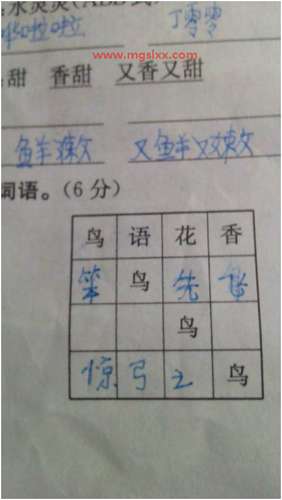 水灵灵(ABB式)
啦啦 丁零零
www.mgslxx.com
甜 香甜 又香又甜
鲜嫩 又鲜又嫩
词语。(6分)
鸟 语 花 香
笨 鸟 先 飞
鸟
惊 弓 之 鸟